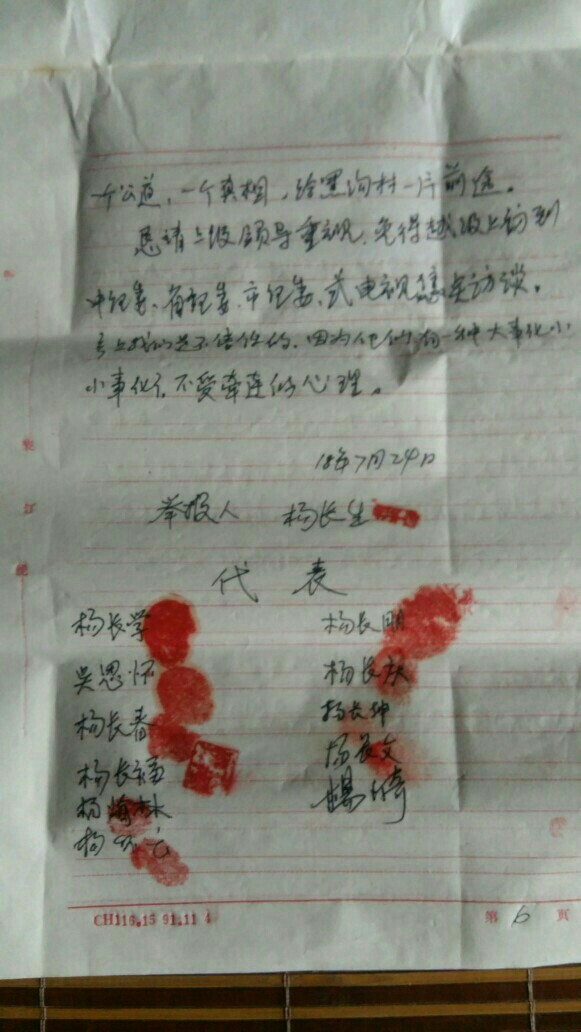 一个公道，一个真相，给黑沟村一片前途。
恳请上级领导重视，免得越级上访到
中纪委、省纪委、市纪委、或电视焦点访谈。
县上我们是不信任的，因为他们有一种大事化小
小事化了，不受牵连的心理。
18年7月24日
举报人 杨长生
代表
杨长学 杨长明
吴思怀 杨长放
杨长春 杨长坤
杨长福 杨长文
杨林
杨
装
订
线
CH116.15 91.11 4 第6页